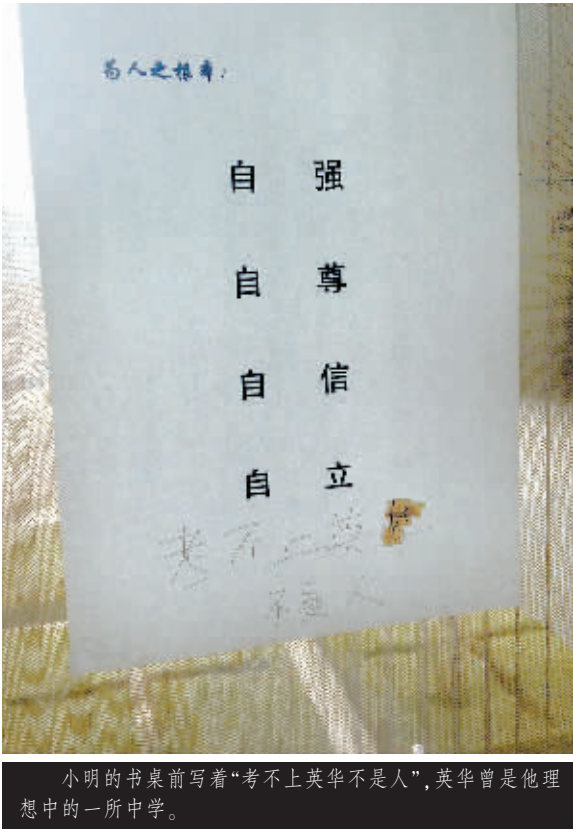 为人之根本：
自 强
自 尊
自 信
自 立
考不上英
不是人
小明的书桌前写着“考不上英华不是人”,英华曾是他理
想中的一所中学。